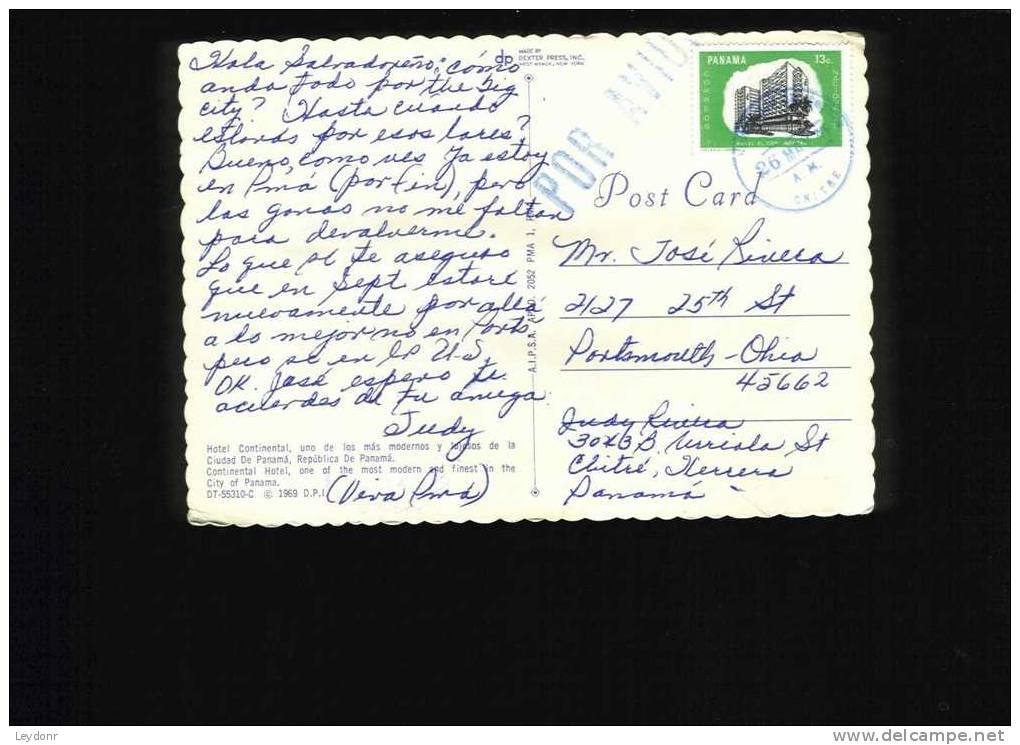 Hola Salvadoreño: cómo
anda todo por the big
city? Hasta cuando
estarás por esos lares?
Bueno, como ves ya estoy
en Pmá (por fin), pero
las ganas no me faltan
para devolverme.
Lo que sí te aseguro
que en Sept estaré
nuevamente por allá
a lo mejor no en Ports.
pero sí en la U.S.
OK. José espero te
acuerdes de tu amiga
Judy
(Viva Pmá)
Hotel Continental, uno de los más modernos y lujosos de la
Ciudad De Panamá, República De Panamá.
Continental Hotel, one of the most modern and finest in the
City of Panama.
DT-55310-C © 1969 D.P.I.
dp MADE BY
DEXTER PRESS, INC.
WEST NYACK, NEW YORK
A.I.P.S.A. APDO. 2052 PMA 1,
POR AVION
PANAMA 13c.
CORREOS
26
A.M.
CHITRE
Post Card
Mr. José Rivera
2127 25th St
Portsmouth - Ohio
45662
Judy Rivera
B, Urriola St
Chitré, Herrera
Panamá
Leydonr
www.delcampe.net